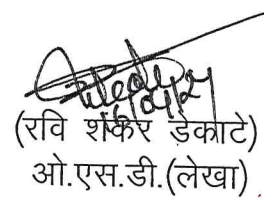 (रवि शंकर डेकाटे)
ओ.एस.डी.(लेखा)